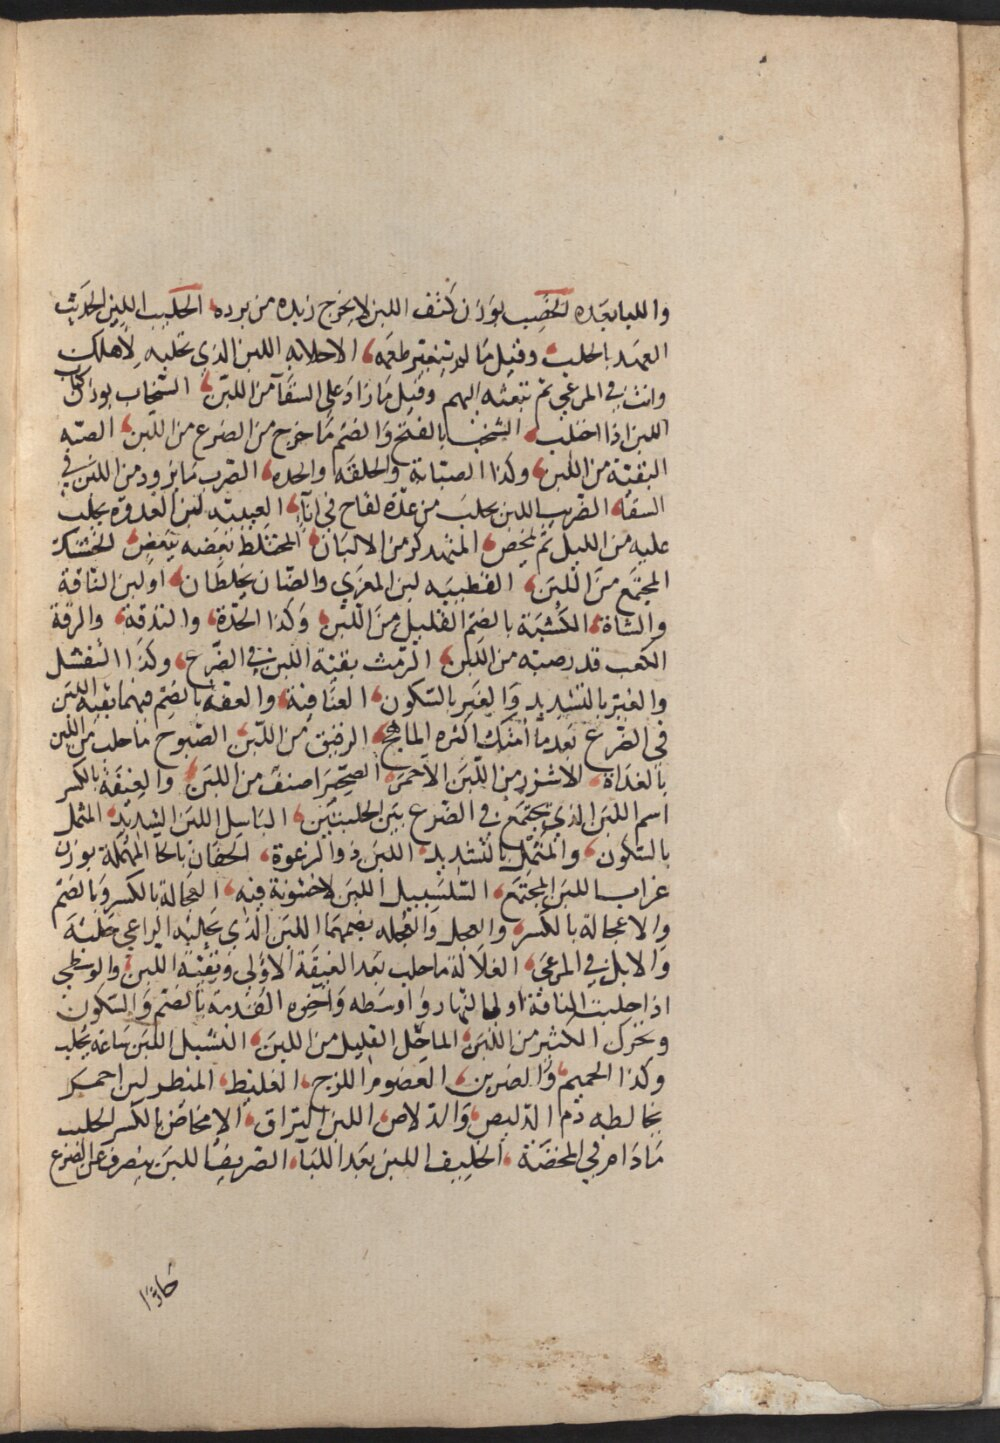 واللبا بجده لخضب بوزن كتف اللبن لا يخرج زبده من برده الحليب اللبن الحديث
العهد بالحلب وقيل ما لم يتغير طعمه الاحلابه اللبن الذي تحلبه لاهلك
وانت في المرعى ثم تبعثه اليهم وقيل ما زاد على السقآ من اللبن الشخاب بوزن كتاب
اللبن اذا احتلب الشخب بالفتح والضم ما خرج من الضرع من اللبن الصبه
البقية من اللبن وكذا الصبابة والحلقه الضرب ما يزود من اللبن في
السقا الضريب اللبن يحلب من عدة لقاح في انآ العبيثه لبن الغدوة يحلب
عليه من الليل ثم يمخض من الالبان المختلط بعضه ببعض
المجتمع من اللبن القطيبيه لبن المعزي والضان يخلطان او لبن الناقة
والشاة الكثبة بالضم القليل من اللبن وكذا والمزقة
الكعب قدر صبه من اللبن الرمث بقية اللبن في الضرع وكذا
والغبر بالتشديد والغبر بالسكون العنافة والعفة بالضم فيهما بقية اللبن
في الضرع بعدما امتك اكثره الماهج الرقيق من اللبن الصبوح ما حلب من اللبن
بالغداة من اللبن الاحمر الصحيرا صنف من اللبن والفيقة بالكسر
اسم اللبن الذي يجتمع في الضرع بين الحلبتين الباسل اللبن الشديد المثمل
بالسكون والمثمل بالتشديد اللبن ذو الرغوة الحقان بالحآ المهملة بوزن
غراب اللبن المجتمع السلسبيل اللبن لا خشونة فيه العجالة بالكسر وبالضم
والاعجالة بالكسر والعجل والعجله بضمهما اللبن الذي يحلبه الراعي حلبة
والابل في المرعى العلالة ما حلب بعد الفيقة الاولى وبقية اللبن والوسطي
اذا حلبت الناقة اول النهار واوسطه واخره القدمة بالضم والسكون
وتحرك الكثير من اللبن الماحل القليل من اللبن الفشيل اللبن ساعة يحلب
وكذا الحميم والضريب اللزج الغليظ لبن احمر
يخالطه دم الدليص والدلاص اللبن البراق الامخاض بالكسر الحليب
مادام في الممخضة الخليف اللبن بعد اللبآ الصريف اللبن ينصرف عن الضرع
حارًا